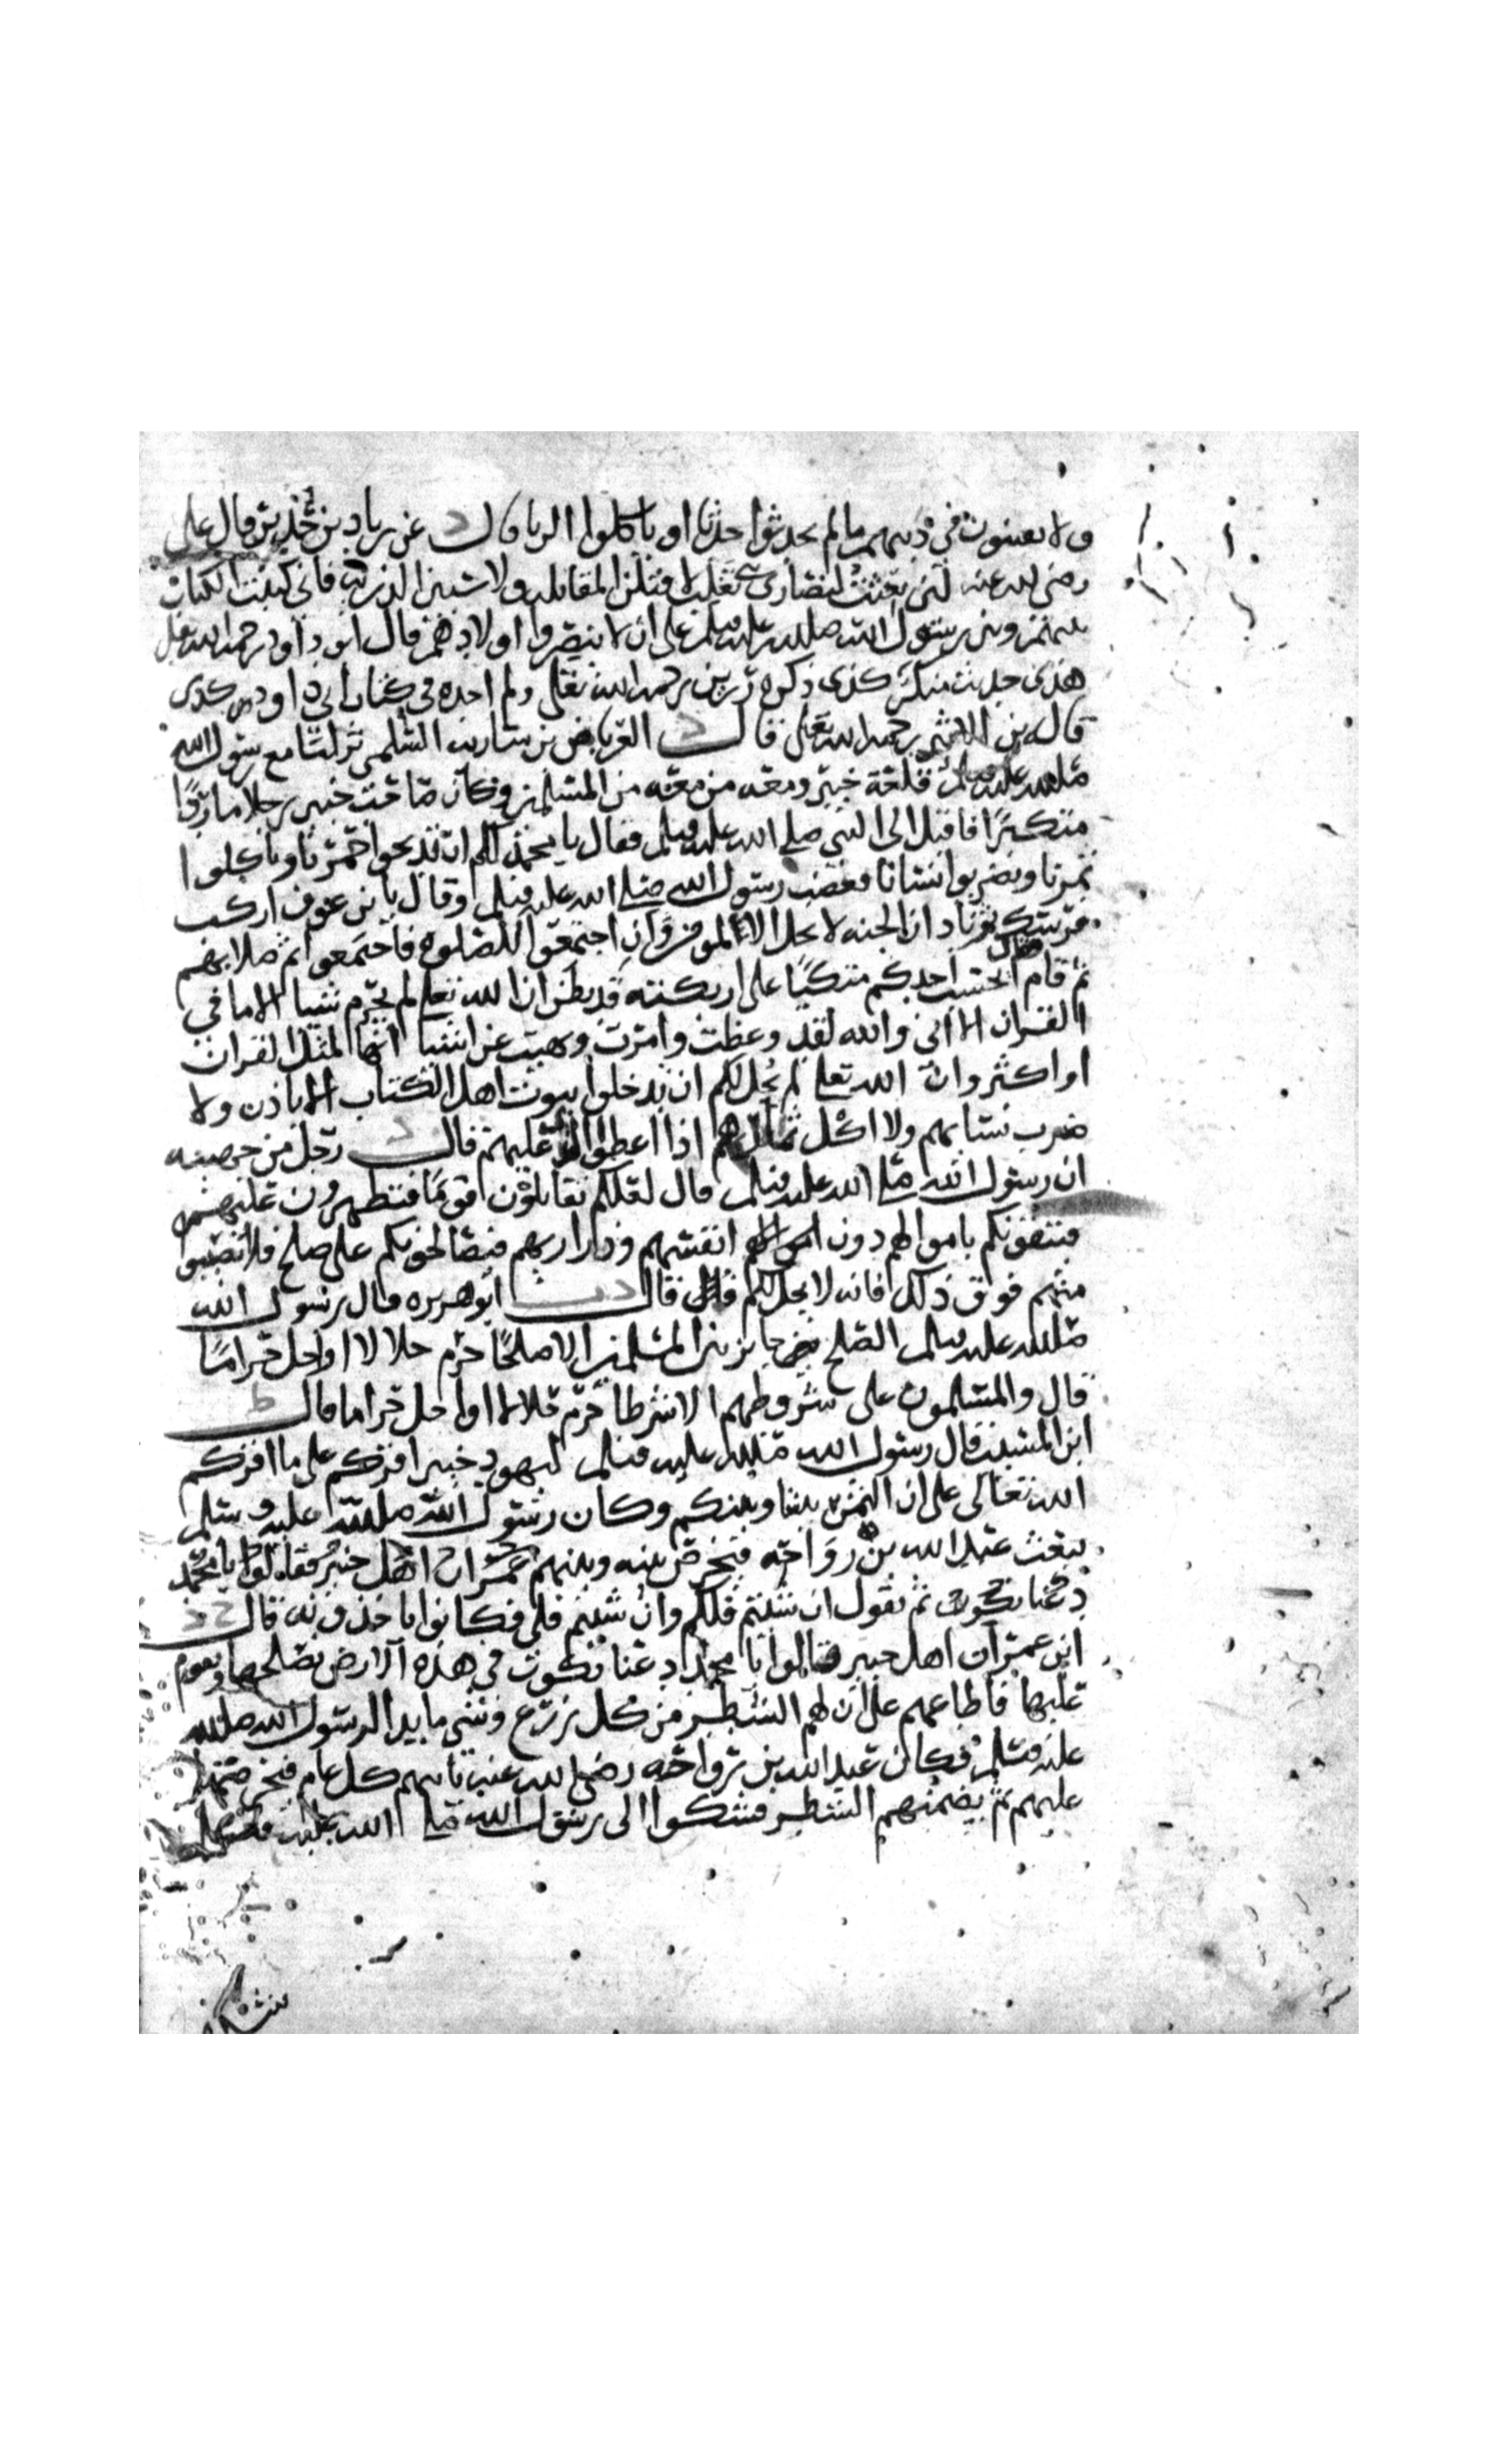 ولا يفتنون في دينهم ما لم يحدثوا حدثا او ياكلوا الربا قال د عن زياد بن حدير قال علي
رضي الله عنه لئن بقيت لنصارى بني تغلب لاقتلن المقاتله ولاسبين الذريه فاني كتبت الكتاب
بينهم وبين رسول الله صلى الله عليه وسلم على ان لا ينصروا اولادهم قال ابو داود رحمه الله
هذى حديث منكر كذى ذكره رزين رحمه الله تعلى ولم اجده في كتاب ابي داود كذى
قاله بن الاثير رحمه الله تعلى قال د العرباض بن ساريه السلمي نزلنا مع رسول الله
صلى الله عليه وسلم قلعة خيبر ومعه من معه من المسلمين وكان صاحب خيبر رجلا ماردا
متكبرا فاقبل الى النبي صلى الله عليه وسلم فقال يا محمد الكم ان تذبحوا حمرنا وتاكلوا
ثمرنا وتضربوا نسانا فغضب رسول الله صلى الله عليه وسلم وقال يا بن عوف اركب
فرسك ثم ناد ان الجنه لا تحل الا لمومن وان اجتمعوا للصلوه فاجتمعوا ثم صلا بهم
ثم قام فقال ايحسب احدكم متكيا على اريكته قد يظن ان الله تعلى لم يحرم شيا الا ما في
القران الا اني والله لقد وعظت وامرت ونهيت عن اشيا انها لمثل القران
او اكثر وان الله تعلى لم يحل لكم ان تدخلوا بيوت اهل الكتاب الا باذن ولا
ضرب نسايهم ولا اكل ثمارهم اذا اعطوا الذي عليهم قال د رجل من جهينه
ان رسول الله صلى الله عليه وسلم قال لعلكم تقاتلون قوما فتظهرون عليهم
فيتقونكم باموالهم دون انفسهم وذراريهم فيصالحونكم على صلح فلا تصيبوا
منهم فوق ذلك فانه لا يحل لكم قال د ت ابو هريره قال رسول الله
صلى الله عليه وسلم الصلح جايز بين المسلمين الا صلحا حرم حلالا او احل حراما
قال والمسلمون على شروطهم الا شرطا حرم حلالا او احل حراما قال ط
ابن المسيب قال رسول الله صلى الله عليه وسلم ليهود خيبر اقركم على ما اقركم
الله تعالى على ان الثمر بيننا وبينكم وكان رسول الله صلى الله عليه وسلم
يبعث عبد الله بن رواحه فيخرص بينه وبينهم عمران اهل خيبر فقالوا يا محمد
دعنا نكون ثم يقول ان شيتم فلكم وان شيتم فلي فكانوا ياخذونه قال خ د
ابن عمر ان اهل خيبر قالوا يا محمد دعنا نكون في هذه الارض نصلحها ونقوم
عليها فاعطاهم على ان لهم الشطر من كل زرع وشي ما بدا لرسول الله صلى الله
عليه وسلم فكان عبد الله بن رواحه رضي الله عنه ياتيهم كل عام فيخرصها
عليهم ثم يضمنهم الشطر فشكوا الى رسول الله صلى الله عليه وسلم